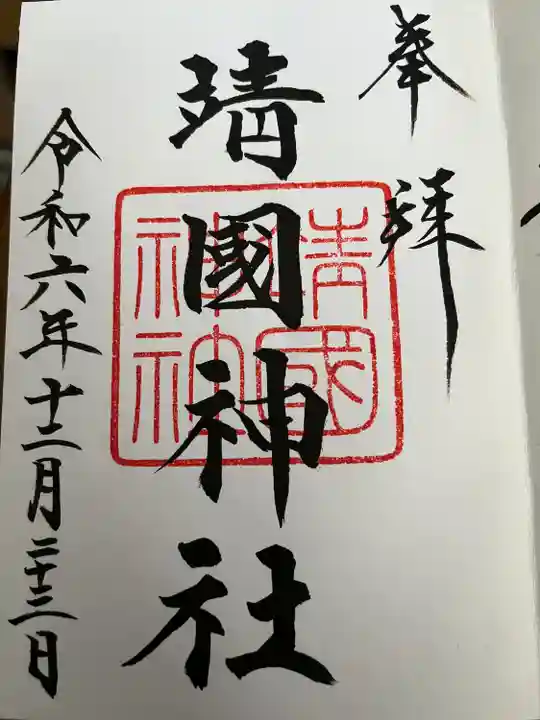 奉拝
靖國神社
令和六年十二月二十三日
靖國
神社